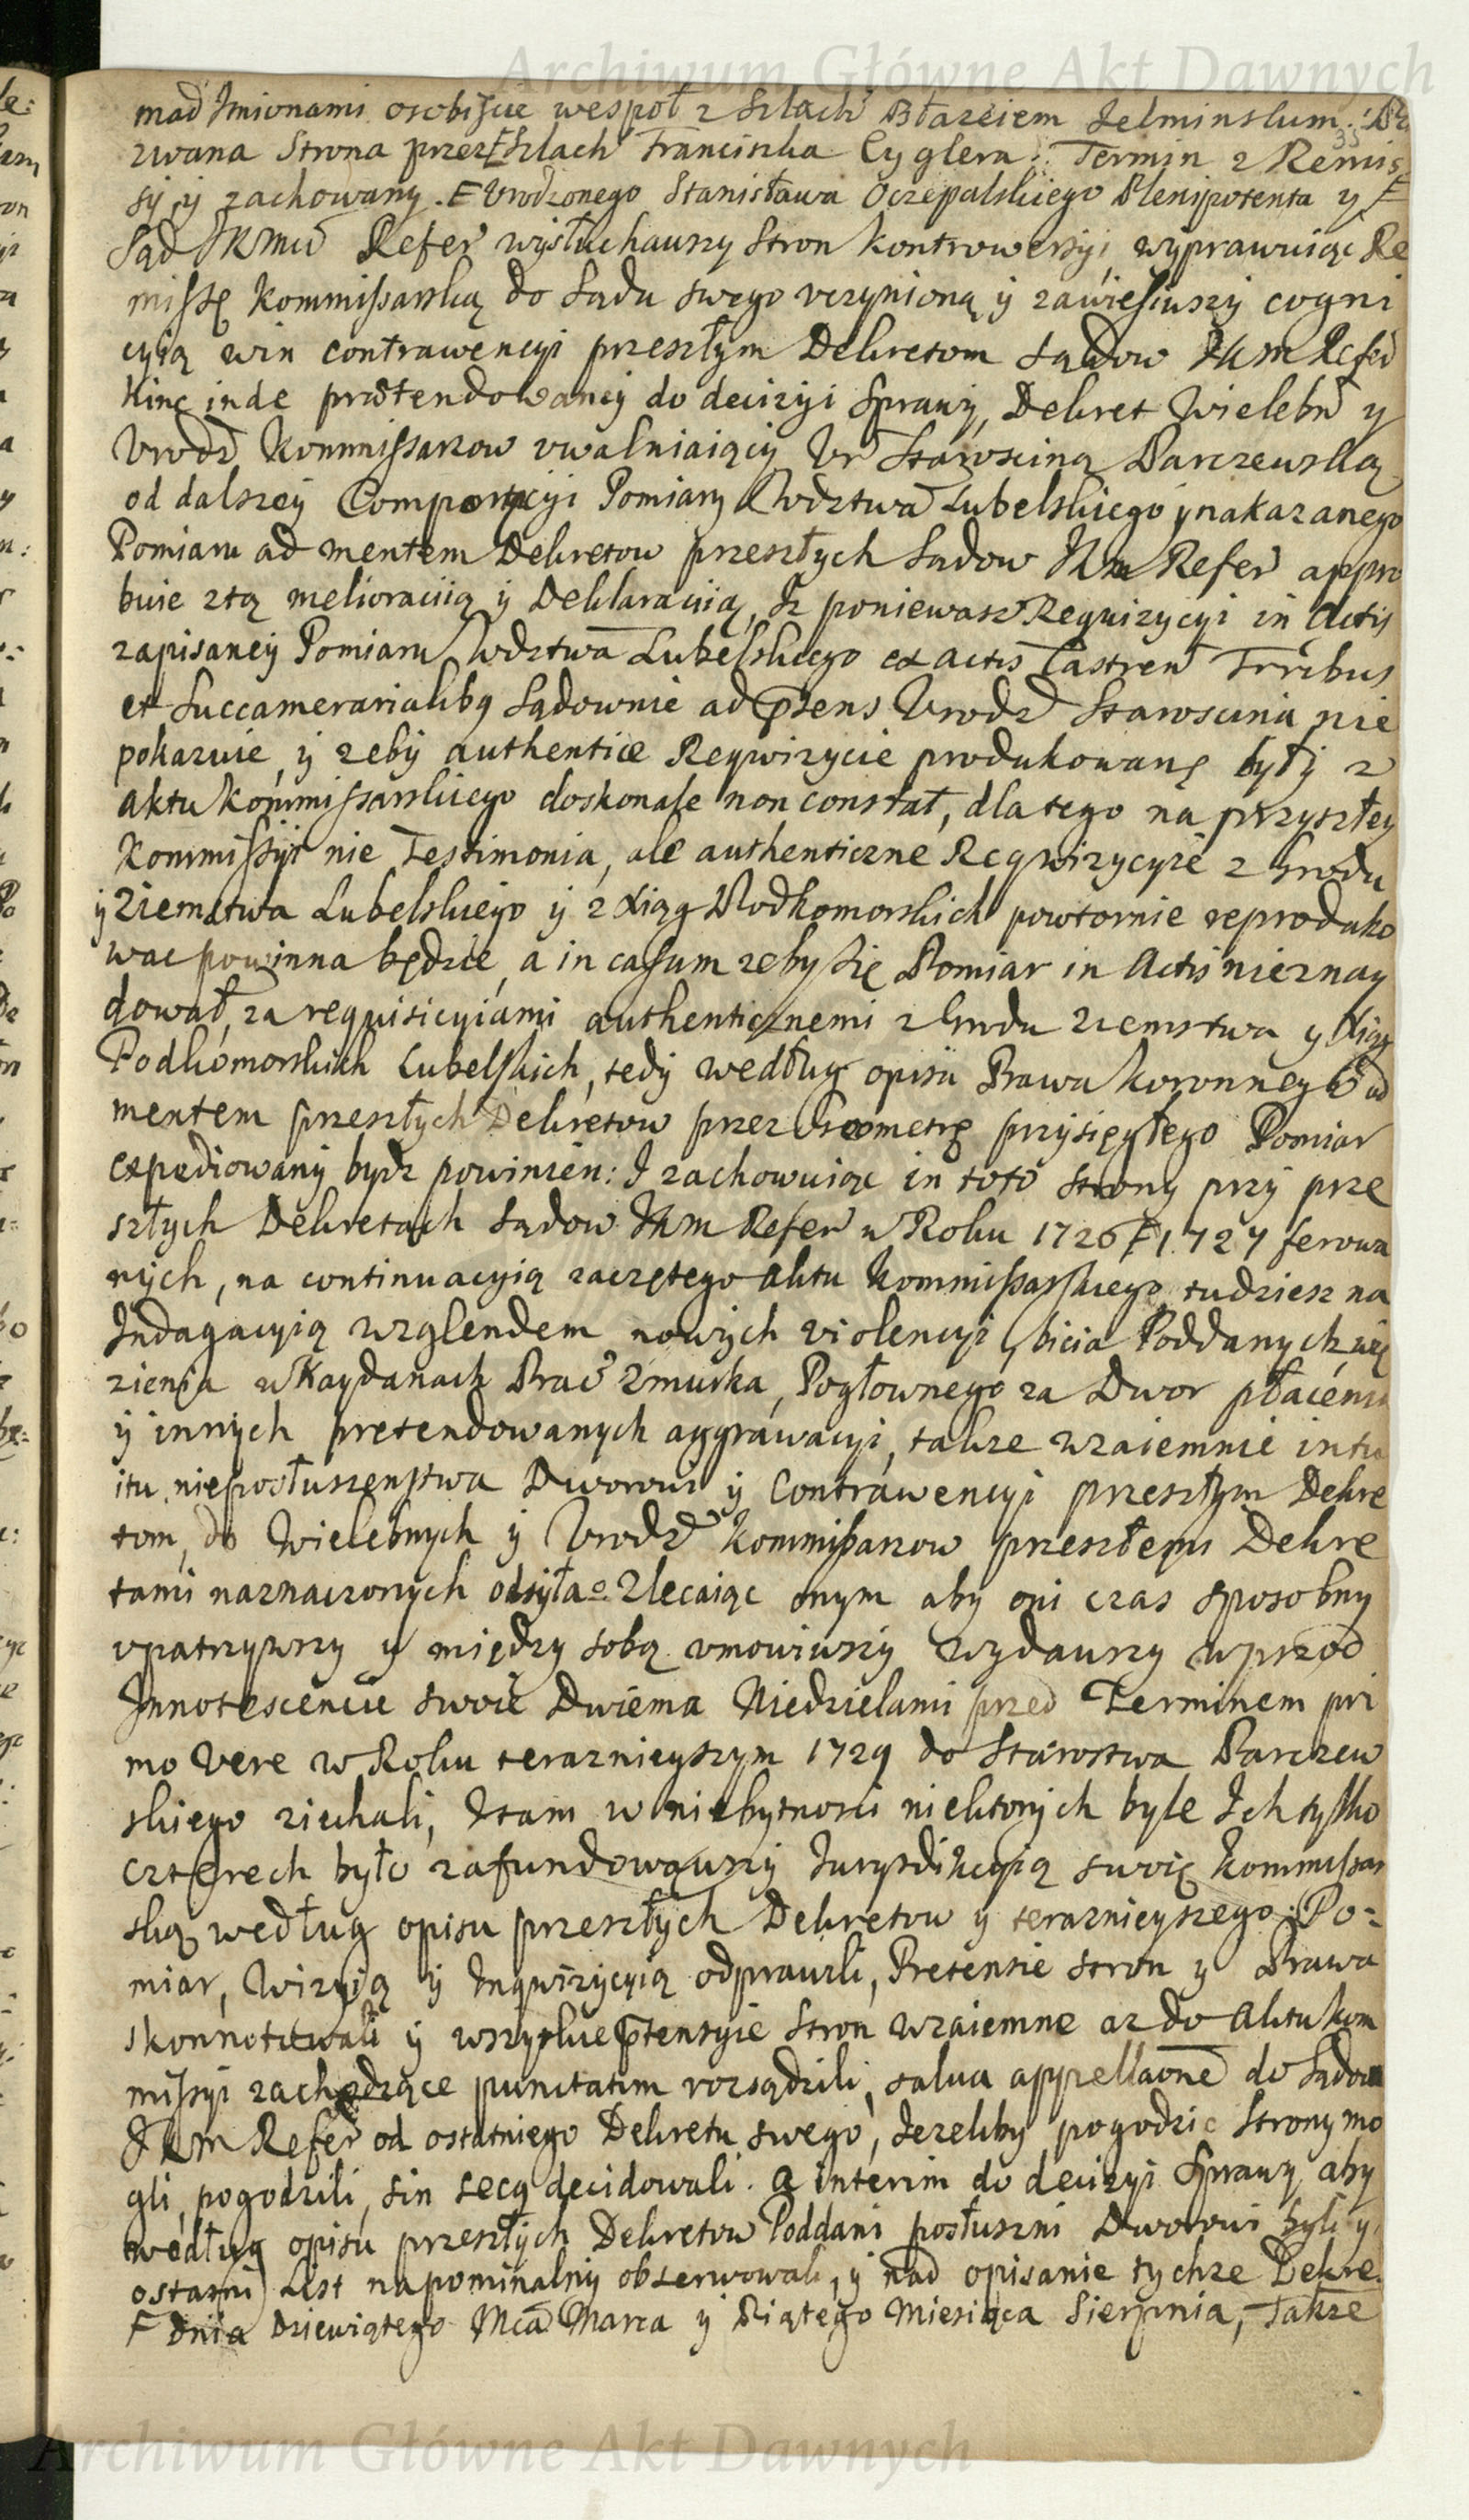 Archiwum Główne Akt Dawnych
mad Imionami osobiście wespoł z Szlach Błażeiem Jelminskim.
35
zwana Strona przez F Szlach Franciszka Cyglera. Termin z Remis
syi zachowany. F Urodzonego Stanisława Oczepalskiego Plenipotenta y F
Sąd JKMci Refer wysłuchawszy Stron kontrowersyi, wyprawuiąc Re
missę Kommissarską do Sądu swego uczynioną y zawiesiwszy cogni
cyią win contrawencyi przeszłym Dekretom Sądow JKM Refer
hinc inde praetendowaney do decizyi Sprawy, Dekret Wielebn y
Urodz Kommissarzow uwalniaiący Ur Starościną Parczewską
od dalszey Comportacyi Pomiary Wdztwa Lubelskiego y nakazanego
Pomiaru ad mentem Dekretow przeszłych Sądow JKM Refer appro
buie z tą melioraciią y Deklaraciią, Iż poniewasz Requizycyi in Actis
zapisaney Pomiaru Wdztwa Lubelskiego ex actis Castren Trribus
et Succamerarialibq Sądownie ad ꝑsens Urodz Starościna nie
pokazuie, y żeby authentice Reqwizycie produkowane były z
aktu kommissarskiego doskonale non constat, dla tego na przyszłey
Kommissyi nie Testimonia, ale authentyczne Reqwizycyie z Grodu
y Ziemstwa Lubelskiego y z Xiąg Podkomorskich powtornie reproduko
wac powinna będzie, a in casum zeby się Pomiar in Actis nieznay
dował, za requisicyiami authenticznemi z Grodu Ziemstwa y Xiąg
Podkomorskich Lubelskich, tedy według opisu Prawa koronnego ad
mentem przeszłych Dekretow przez Geometrę przysięgłego Pomiar
expediowany bydz powinien: I zachowuiąc in toto Strony przy prze
szłych Dekretach Sądow JKM Refer w Roku 1726 F 1727 ferowa
nych, na continuacyią zaczętego Aktu Kommissarskiego, tudziesz na
Indagacyią wzglendem nowych violencyi, bicia Poddanych, wię
zienia w Kaydanach Prac Zmurka, Pogłownego za Dwor płacenia
y innych pretendowanych aggrawacyi, takze wzaiemnie intu
itu nieposłuszenstwa Dworowi y Contrawencyi przeszłym Dekre
tom, do Wielebnych y Urodz Kommissarzow przeszłemi Dekre
tami naznaczonych odsyła. Zlecaiąc onym aby oni czas sposobny
upatrzywszy y między sobą umowiwszy wydawszy wprzod
Innotescencie swoie Dwiema Niedzielami przed Terminem pri
mo Vere w Roku teraznieyszym 1729 do Starostwa Parczew
skiego ziechali, I tam w niebytnosci niektorych byle Ich tylko
czterech było zafundowawszy Iurysdikcyią swoię Kommissar
ską według opisu przeszłych Dekretow y terazniejszego Po-
miar, Wizyią y Inqwizycyią odprawili, Pretensie stron y Prawa
skonnotowali y wszystkie ꝑtensyie Stron wzaiemne aż do Aktu kom
missyi zachodzące punctatim rozsądzili, salva appellaone do Sądow
JKM Refer od ostatniego Dekretu swego, Jezeliby pogodzic Strony mo
gli, pogodzili, sin secq decidowali. A interim do decizyi Sprawy, aby
według opisu przeszłych Dekretow Poddani posłuszni Dworowi byli y
ostatni List napominalny obserwowali, y nad opisanie tychze Dekre
F dnia Dziewiątego Mca Marca y Piątego Miesiąca Sierpnia, Takze
Archiwum Główne Akt Dawnych